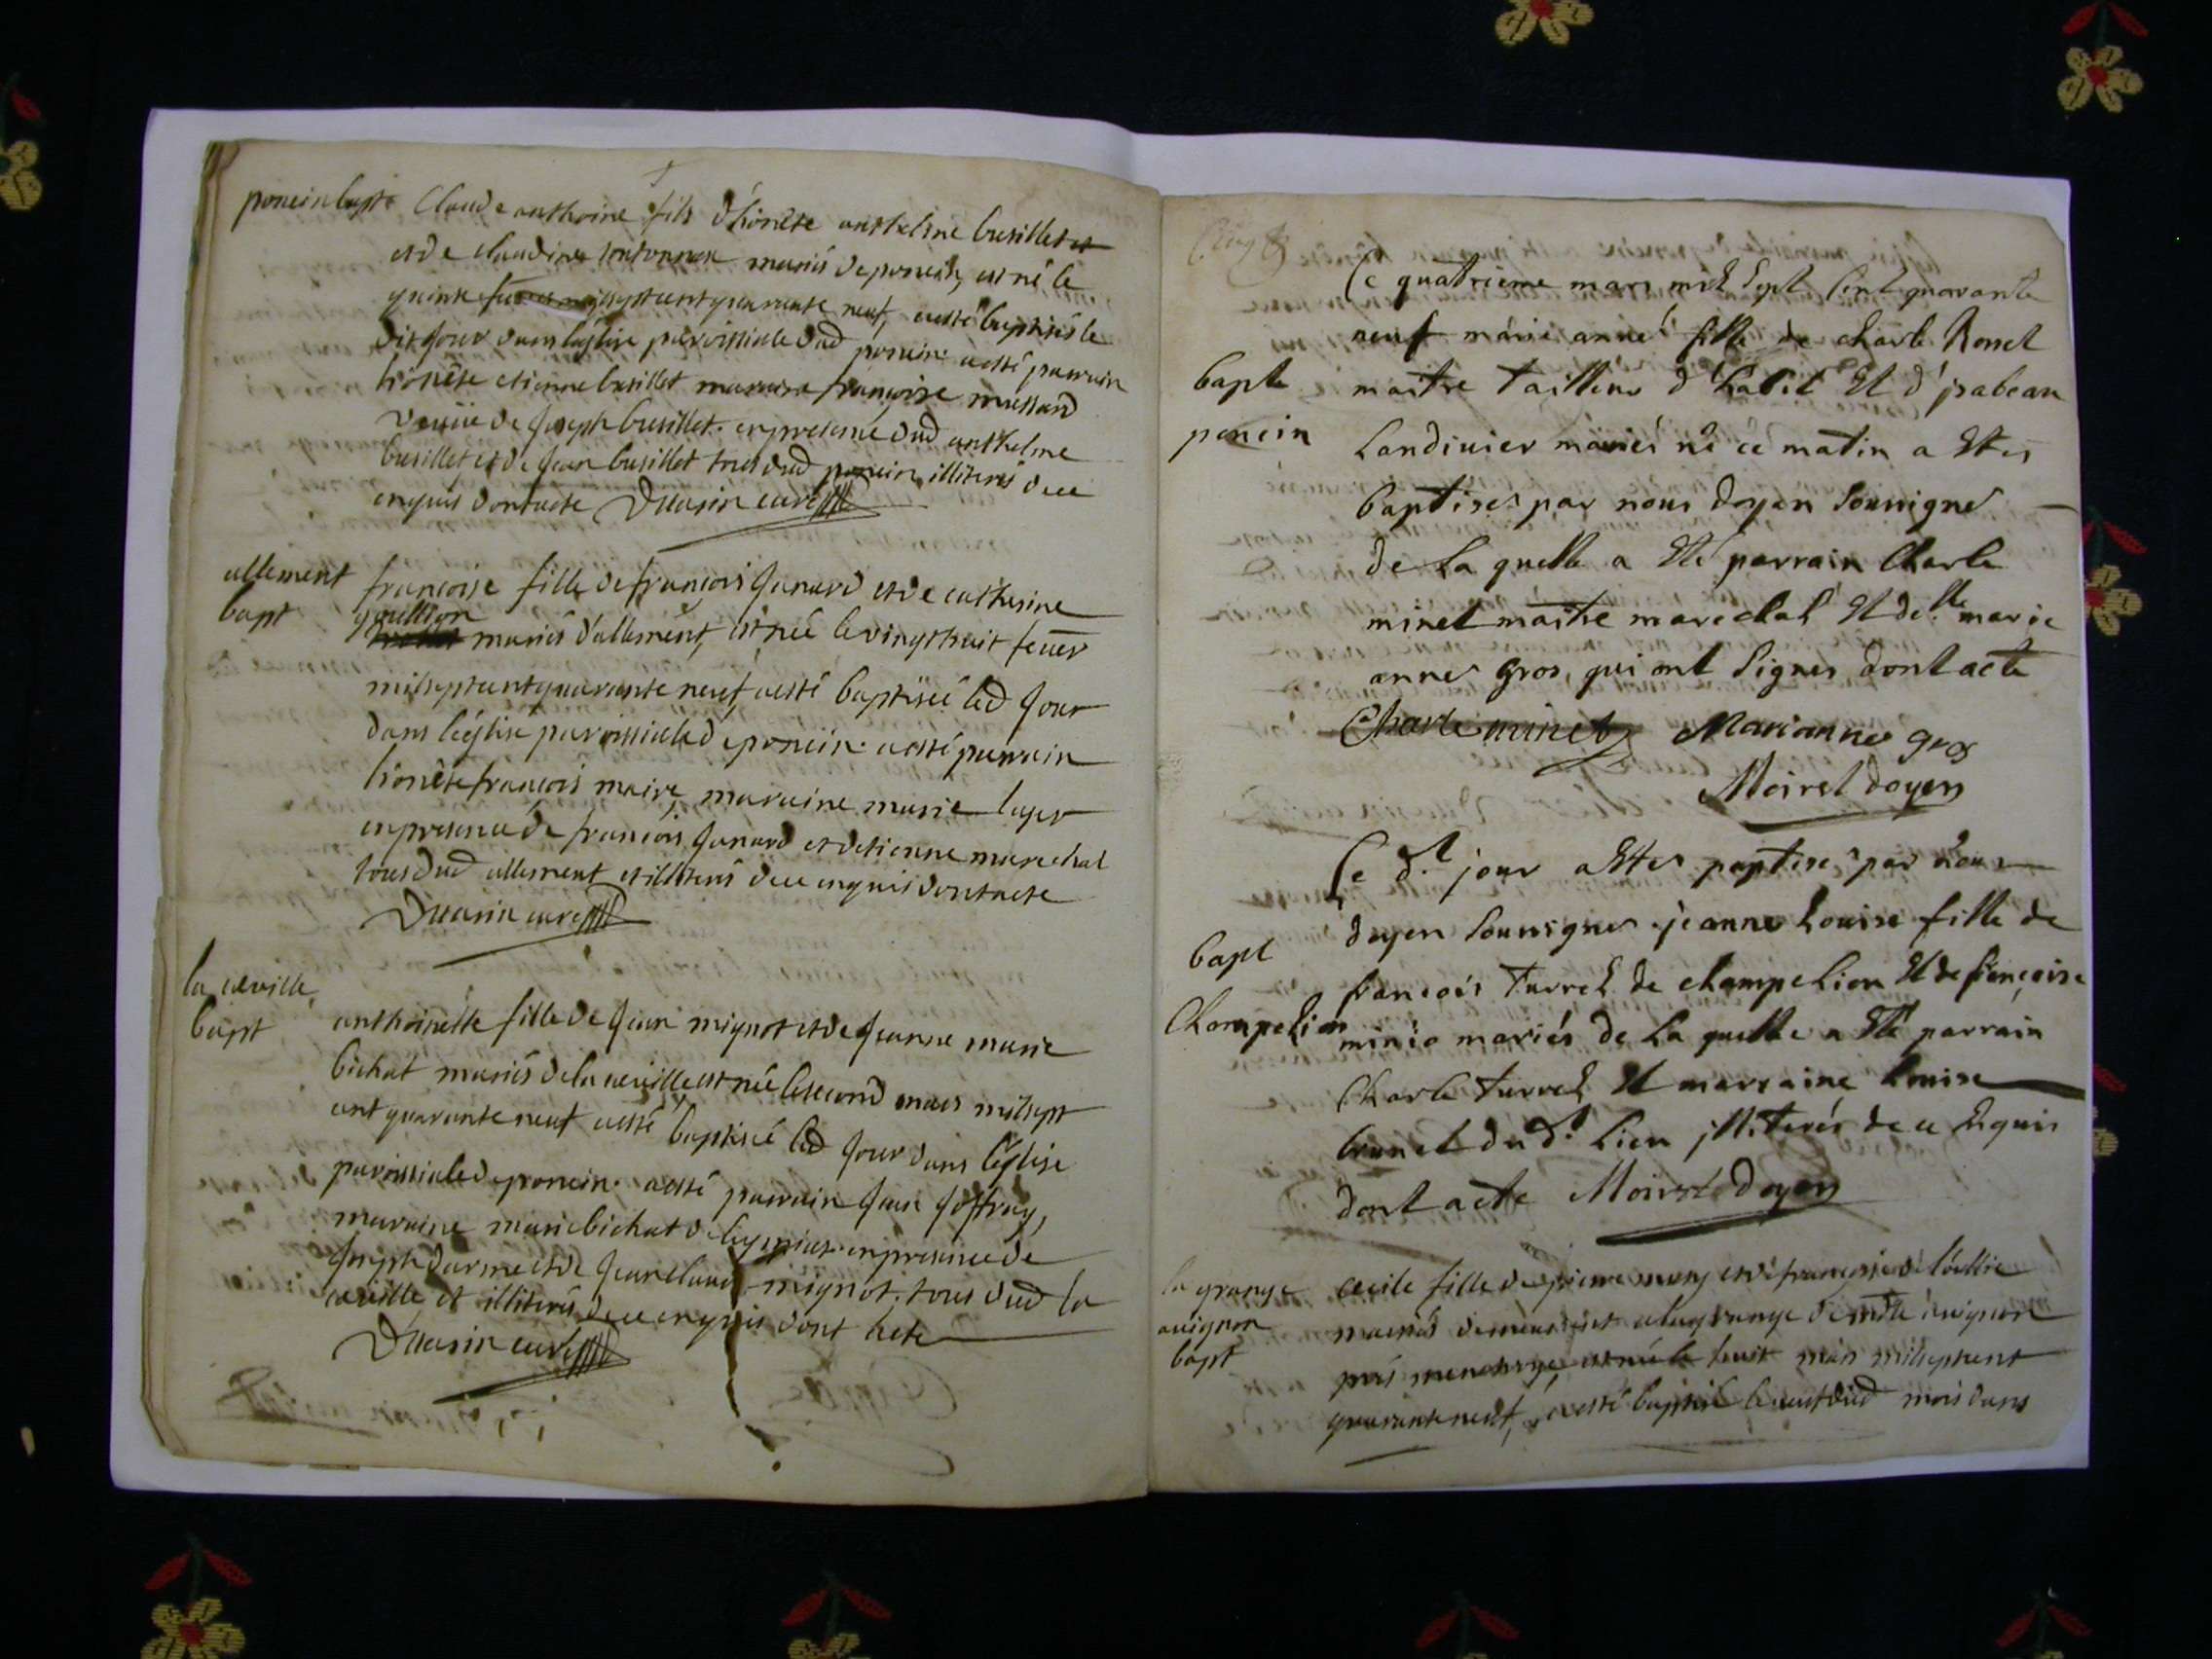 poncin bapt
Claude anthoine fils d'hónéte anthelme busillet et
et de claudine mariés de poncin, est né le
quinze milseptcentquarante neuf, aesté baptisés le
dit jour dans léglise paroissiale dud poncin aesté parrain
hónéte etienne busillet maraine françoise massard
veuue de joseph busillet. en presence dud anthelme
busillet et de jean busillet tous dud poncin illiterés de ce
enquis dont acte Duasin curé
allement
bapt
françoise fille de françois junard et de catherine
goullion
mariés d'allement, est née le vingthuit feuer
milseptcentquarante neuf, aesté baptiseé led jour
dans léglise paroissiale de poncin. aesté parrain
hónéte françois maire, maraine marie layer
en presence de françois junard et detienne marechal
tous dud allement et illiterés de ce enquis dont acte
Duasin curé
la cueille
bapt
anthoinétte fille de jean mignot et de jeanne marie
bichat mariés de la cueille est née le second mars milsept
cent quarante neuf aesté baptiseé led jour dans léglise
paroissiale de poncin. aesté parrain jean joffray,
maraine marie bichat de leymiat en presence de
joseph darme et de jean claude mignot. tous dud la
cueille et illiterés de ce enquis dont acte
Duasin curé
Ce quatrieme mars mil sept Cent quarante
neuf marie anne fille de charle Rosset
bapte
maitre tailleur d'habit Et d'jsabeau
poncin
Landiuier mariés né ce matin a Etes
baptises par nous doyen soussigné
de La quelle a Eté parrain Charle
minet maitre marechal Et delle marie
anne gros, qui ont Signes dont acte
Charle minet Marianne gros
Moirel doyen
Ce dt jour a Etes paptises par nous
doyen soussigne jeanne Louise fille de
bapt
françois Turrel de champelion Et de françoise
Champelion
minio mariés de La quelle a Eté parrain
Charle Turrel Et marraine Louise
brunet dudt Lieu jlliterés de ce Enquis
dont acte Moirel doyen
la grange
auignon
bapt
cecile fille de pierre mury et de françoise
mariés demeurant a la grange de auignon
prés menestruy, est née le huit mars milseptcent
quarante neuf, aesté baptisé le neuf dud mois dans